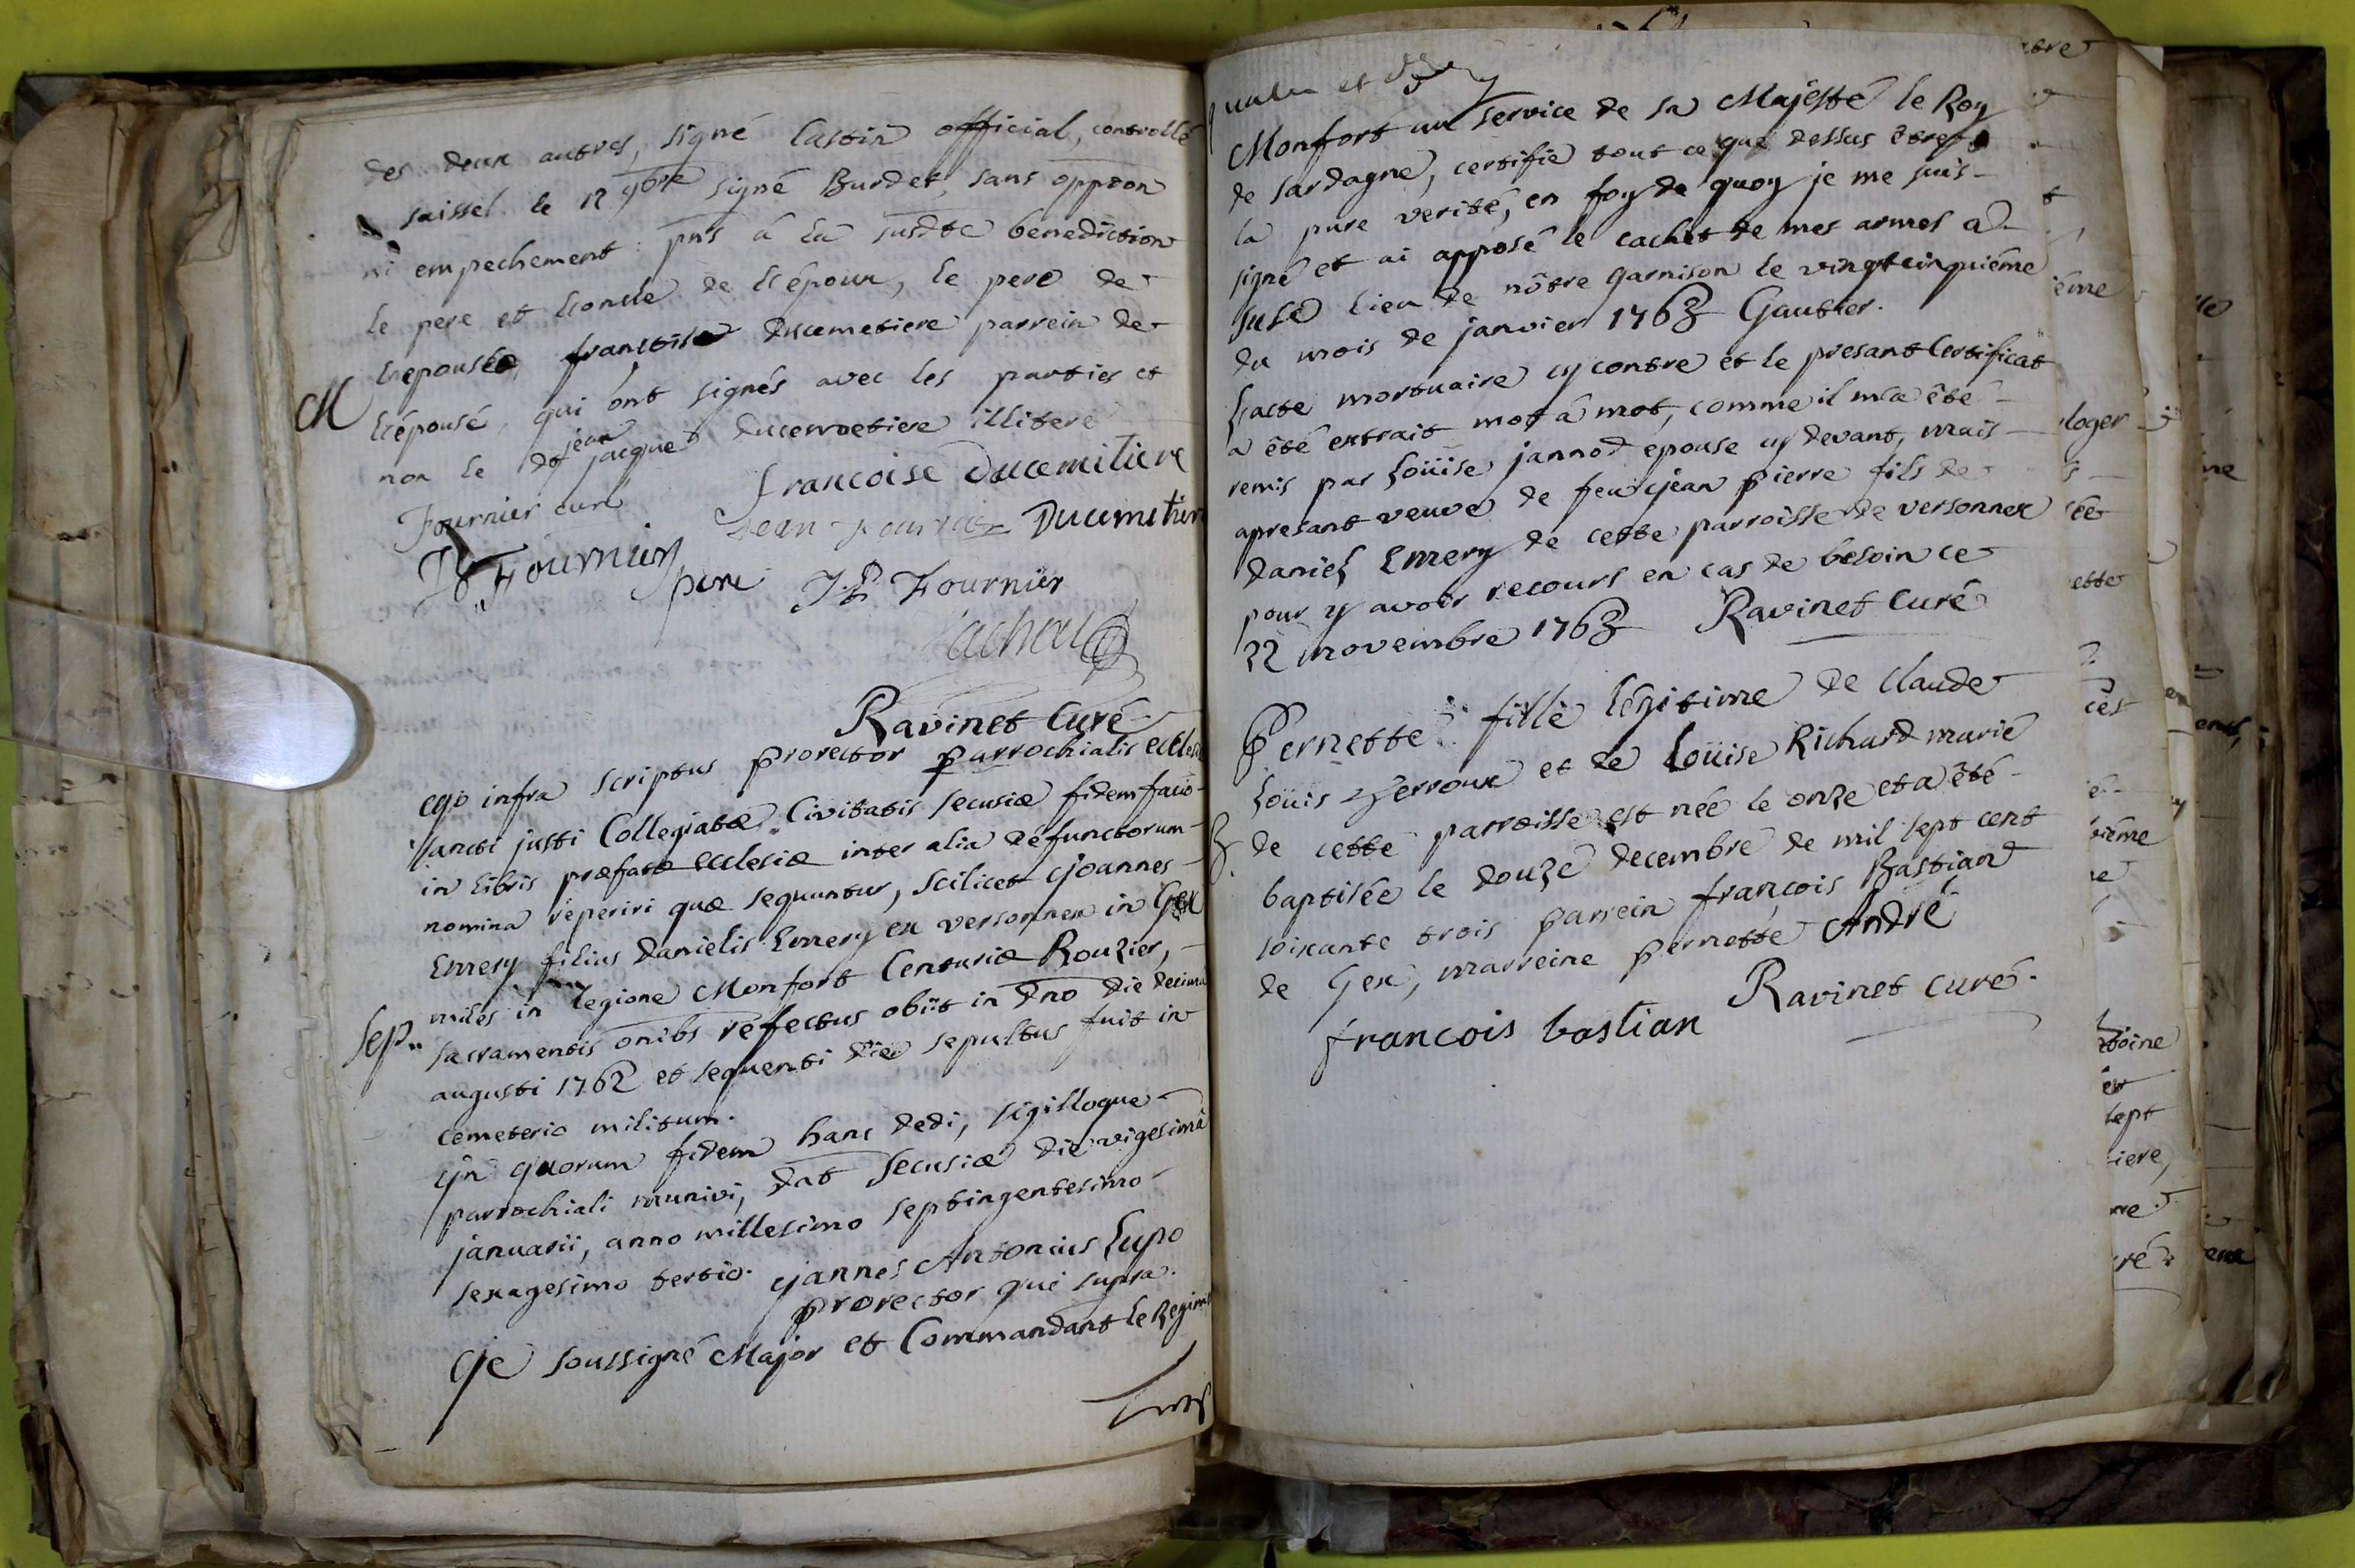 des deux autres, signé Castin official, controllé
saissel le 12 9bre signé Burdet, sans oppõon
ni empechement : pñs á la susdte benediction
le pere et l'oncle de l'époux, le pere de
l'epousée, françoise ducemetiere parrein de
M
l'épousé, qui ont signés avec les parties et
non le dt jean jacque ducemetiere illiteré
Fournier curé
françoise Ducemitiere
Jean Fournier Ducemetiere
Fournier pere
JP Fournier
Lachat
Ravinet Curé
ego infra scriptus prorector parrochialis eccles
sancti justi Collegiatæ Civitatis secusiæ fidem facio
in libris præfatæ ecclesiæ inter alia defunctorum
nomina reperiri quæ sequuntur, scilicet Joannes
Emery filius Danielis Emery ex versonnex in Gex
miles in legione Monfort Centuriæ Rouzier,
Sep..
sacramentis onibs refectus obiit in Dno die decima
augusti 1762 et sequenti die sepultus fuit in
cemeterio militum.
Jn quorum fidem hanc dedi, sigilloque
parrochiali munivi, dat secusiæ die vigesimâ
januarii, anno millesimo septingentesimo
sexagesimo tertio. Joannes Antonius Lupo
prorector qui supra.
Je soussigné Major et Commandant le Regim
Monfort au service de sa Majesté le Roy
de sardagne, certifie tout ce que dessus être
la pure verité, en foy de quoy je me suis
signé et ai apposé le cachet de mes armes a
suse lieu de nôtre garnison le vingt cinquiéme
du mois de janvier 1763 Gautier.
L'acte mortuaire cy contre et le presant Certificat
a été extrait mot á mot, comme il m'a été
remis par Loüise jannod epouse cy devant, mais
apresant veuve de feu jean pierre fils de
daniel Emery de cette parroisse de versonnex
pour y avoir recours en cas de besoin ce
22 novembre 1763 Ravinet Curé
Pernette fille légitime de Claude
Loüis perroux et de Loüise Richard marié
B.
de cette parroisse est née le onze et a été
baptisée le douze decembre de mil sept cent
soixante trois parrein françois Bastian
de Gex, marreine pernette André
francois bastian Ravinet curé.